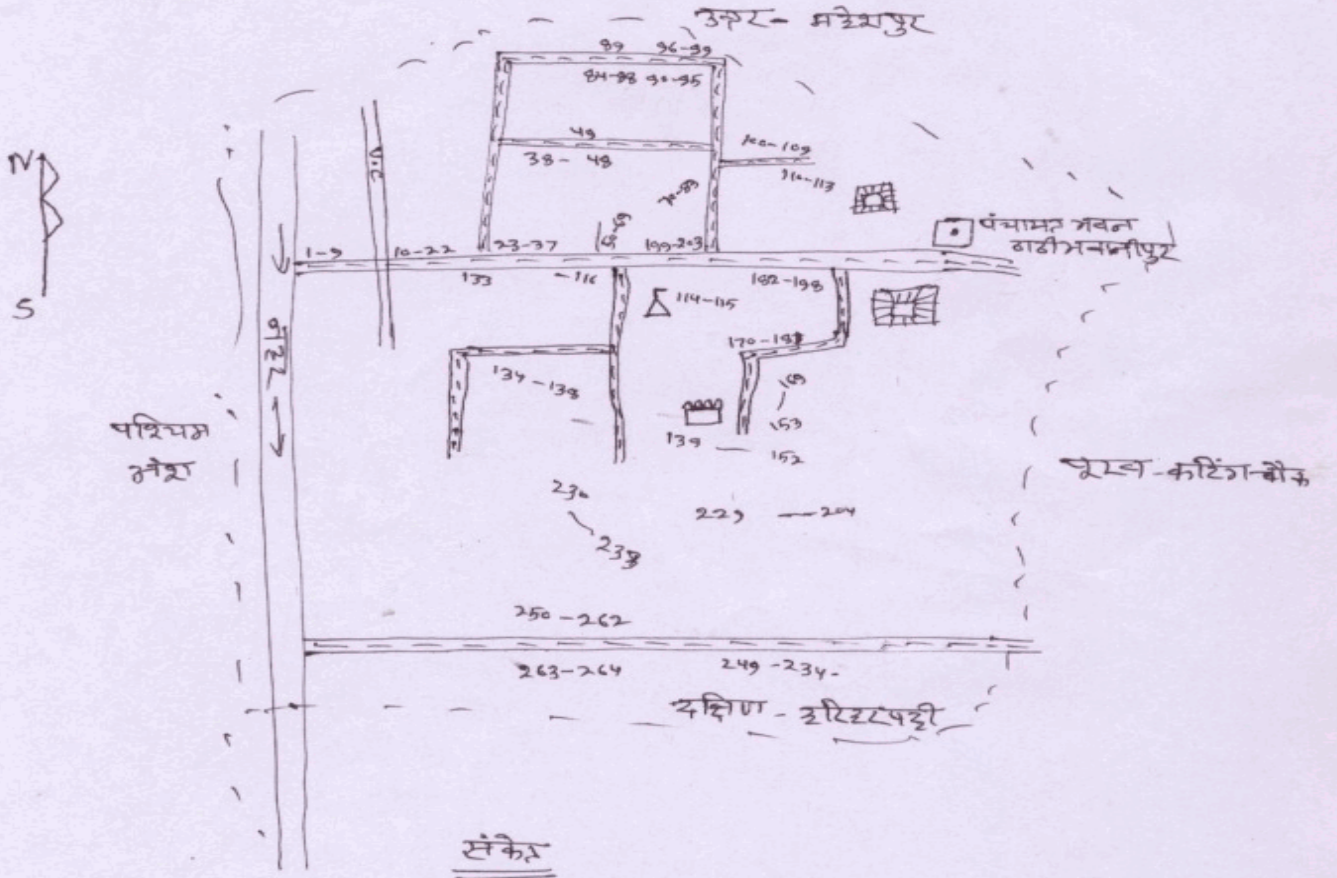 उत्तर - महेशपुर
89 96-99
84-88 90-95
N
49
38 - 48
100-109
110-113
70-83
पंचायत भवन
गढीभवानीपुर
1-9 10-22 23-37 199-203
S
133 -116 182-198
114-115
नहर
170-181
134-138
169
153
139 — 152
पश्चिम
पूरब - कटिंग - चौक
230
229 — 204
238
250 - 262
263-264 249-234-
दक्षिण - हरिहरपट्टी
संकेत